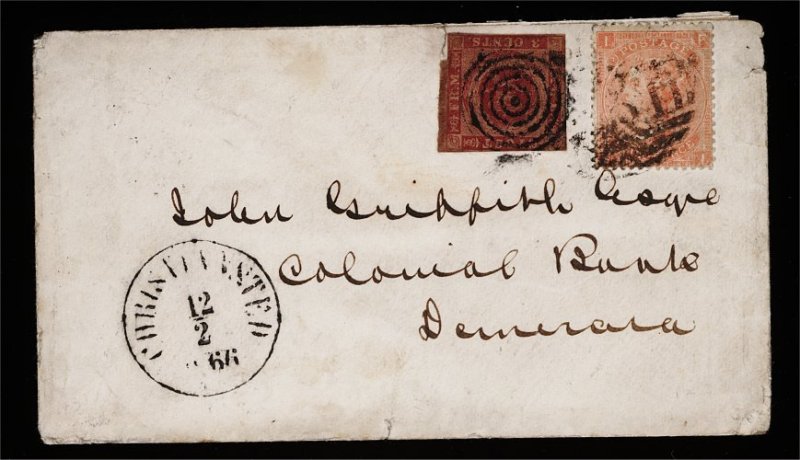 3 CENTS.
FRM.
POSTAGE
John Griffith Esqre
Colonial Bank
Demerara
CHRISTIANSTED
12
2
66